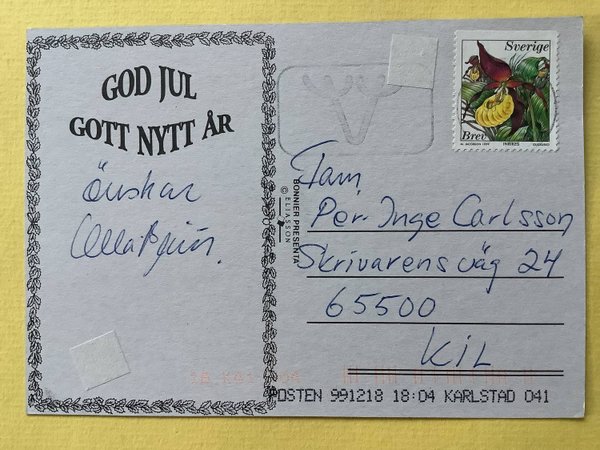 GOD JUL
GOTT NYTT ÅR
önskar
Sverige
Brev
Fam,
Per-Inge Carlsson
Skrivarens väg 24
65500
KIL
BONNIER PRESENTA
© ELIASSON
POSTEN 991218 18:04 KARLSTAD 041